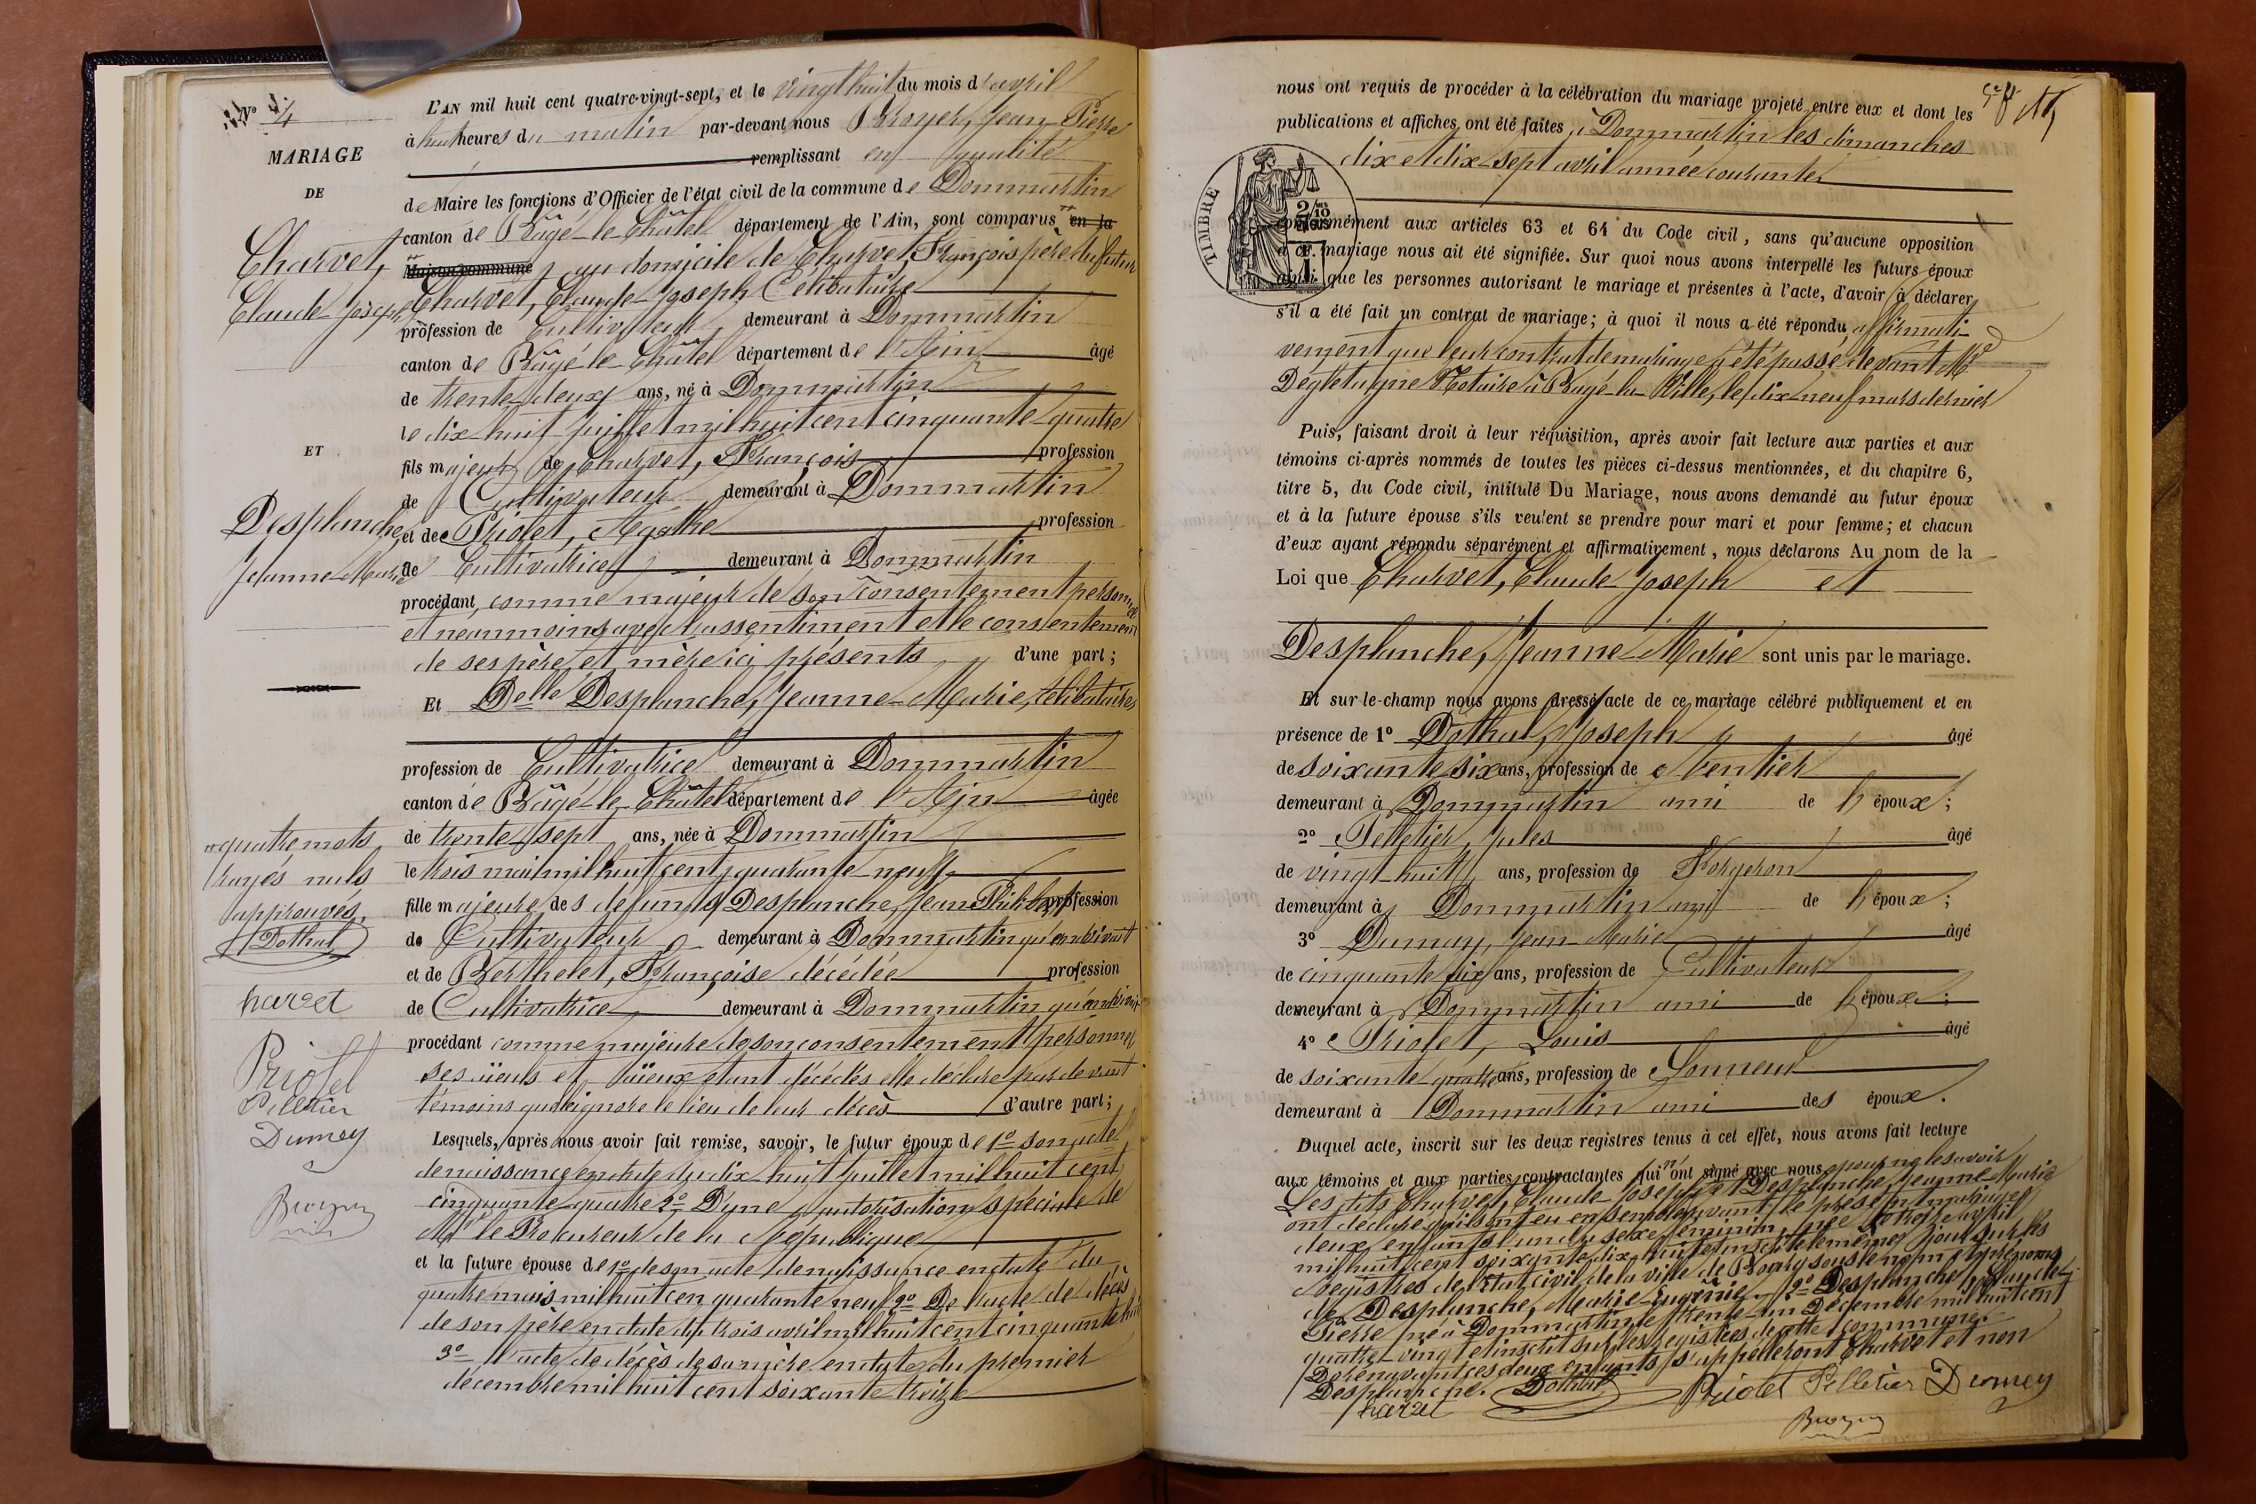 No 4
MARIAGE
DE
Charvet,
Claude Joseph
ET
Desplanche,
Jeanne-Marie
quatre mots
rayés nuls
approuvés.
Dothal
harvet
Priolet
Pelletier
Dumey
L'AN mil huit cent quatre-vingt-sept, et le vingt huit du mois d'avril
à huit heures du matin par-devant nous Broyer, Jean Pierre
remplissant en qualité
de Maire les fonctions d'Officier de l'état civil de la commune de Dommartin
canton de Bâgé-le-Châtel département de l'Ain, sont comparus en la
Maison commune, au domicile de Charvet, François père du futur
Charvet, Claude-Joseph Célibataire
profession de Cultivateur demeurant à Dommartin
canton de Bâgé-le-Châtel département de l'Ain âgé
de trente-deux ans, né à Dommartin
le dix-huit juillet mil huit cent cinquante-quatre
fils majeur de Charvet, François profession
de Cultivateur demeurant à Dommartin
et de Priolet, Agathe profession
de Cultivatrice demeurant à Dommartin
procédant comme majeur de son consentement personnel
et néanmoins avec l'assentiment et le consentement
de ses père et mère ici présents d'une part;
Et Delle Desplanche, Jeanne-Marie, célibataire
profession de Cultivatrice demeurant à Dommartin
canton de Bâgé-le-Châtel département de l'Ain âgée
de trente-sept ans, née à Dommartin
le trois mai mil huit cent quarante-neuf
fille majeure des défunts Desplanche, Jean Philibert profession
de Cultivateur demeurant à Dommartin quand vivait
et de Berthelet, Françoise décédée profession
de Cultivatrice demeurant à Dommartin quand vivait
procédant comme majeure de son consentement personnel
ses aïeuls et aïeux étant décédés elle déclare par devant
témoins qu'elle ignore le lieu de leur décès d'autre part;
Lesquels, après nous avoir fait remise, savoir, le futur époux de 1o son acte
de naissance en date du dix-huit juillet mil huit cent
cinquante-quatre 2o D'une autorisation spéciale de
Mr le Procureur de la République
et la future épouse de 1o de son acte de naissance en date du
quatre mai mil huit cen quarante neuf 2o De l'acte de décès
de son père en date du trois avril mil huit cent cinquante huit
3o l'acte de décès de sa mère en date du premier
décembre mil huit cent soixante treize
nous ont requis de procéder à la célébration du mariage projeté entre eux et dont les
publications et affiches ont été faites à Dommartin les dimanches
dix et dix-sept avril année courante
TIMBRE
2/10 EN SUS
conformément aux articles 63 et 64 du Code civil, sans qu'aucune opposition
à ce mariage nous ait été signifiée. Sur quoi nous avons interpellé les futurs époux
ainsi que les personnes autorisant le mariage et présentes à l'acte, d'avoir à déclarer
s'il a été fait un contrat de mariage; à quoi il nous a été répondu affirmati-
vement que leur contrat de mariage a été passé devant Me
Degletagne Notaire à Bagé-la-Ville, le dix-neuf mars dernier
Puis, faisant droit à leur réquisition, après avoir fait lecture aux parties et aux
témoins ci-après nommés de toutes les pièces ci-dessus mentionnées, et du chapitre 6,
titre 5, du Code civil, intitulé Du Mariage, nous avons demandé au futur époux
et à la future épouse s'ils veulent se prendre pour mari et pour femme; et chacun
d'eux ayant répondu séparément et affirmativement, nous déclarons Au nom de la
Loi que Charvet, Claude Joseph et
Desplanche, Jeanne-Marie sont unis par le mariage.
Et sur-le-champ nous avons dressé acte de ce mariage célébré publiquement et en
présence de 1o Dothal, Joseph âgé
de soixante-six ans, profession de rentier
demeurant à Dommartin ami de l'époux;
2o Pelletier, Jules âgé
de vingt-huit ans, profession de Forgeron
demeurant à Dommartin ami de l'époux;
3o Dumay, Jean-Marie âgé
de cinquante six ans, profession de Cultivateur
demeurant à Dommartin ami de l'époux;
4o Priolet, Louis âgé
de soixante-quatre ans, profession de Sonneur
demeurant à Dommartin ami des époux.
Duquel acte, inscrit sur les deux registres tenus à cet effet, nous avons fait lecture
aux témoins et aux parties contractantes qui n'ont signé avec nous pour ne le savoir
Les dits Charvet, Claude-Joseph et Desplanche, Jeanne-Marie
ont déclaré qu'ils ont eu ensemble avant le présent mariage
deux enfants l'un du sexe féminin, née le trois avril
mil huit cent soixante dix-huit inscrite le même jour sur les
registres de l'état civil de la ville de Bourg sous le nom et prénoms
de Desplanche, Marie-Eugénie, 2o Desplanche, Claude-
Pierre né à Dommartin le trente-un Décembre mil huit cent
quatre-vingt et inscrit sur les registres de cette commune.
Dorénavant ces deux enfants s'appelleront Charvet et non
Desplanche. Dothal Priolet Pelletier Dumey
harvet